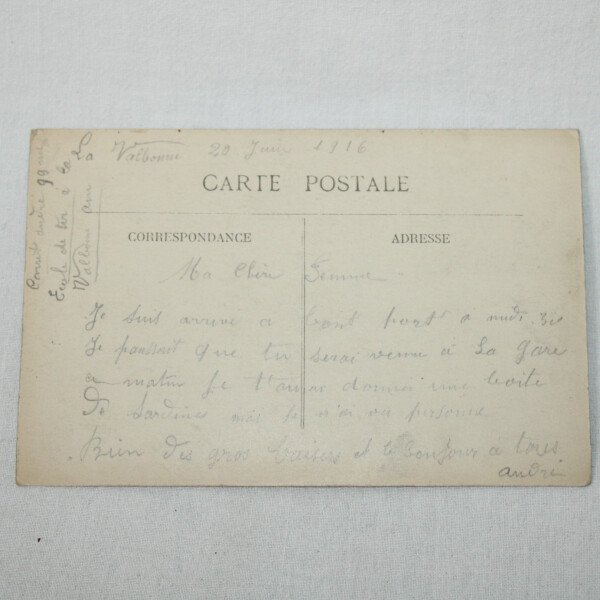 La Valbonne 29 Juin 1916
CARTE POSTALE
CORRESPONDANCE
ADRESSE
Ma Chère Femme
Je suis arrivé a bont port a midi
Je pansait que tu serai venue à La gare
ce matin Je t'aurer donner une boite
De Sardines mai Je n'ai vu personne
Bien des gros baisers et le bonjour à tous
André
99
Ecole de tir
Valbonne ain